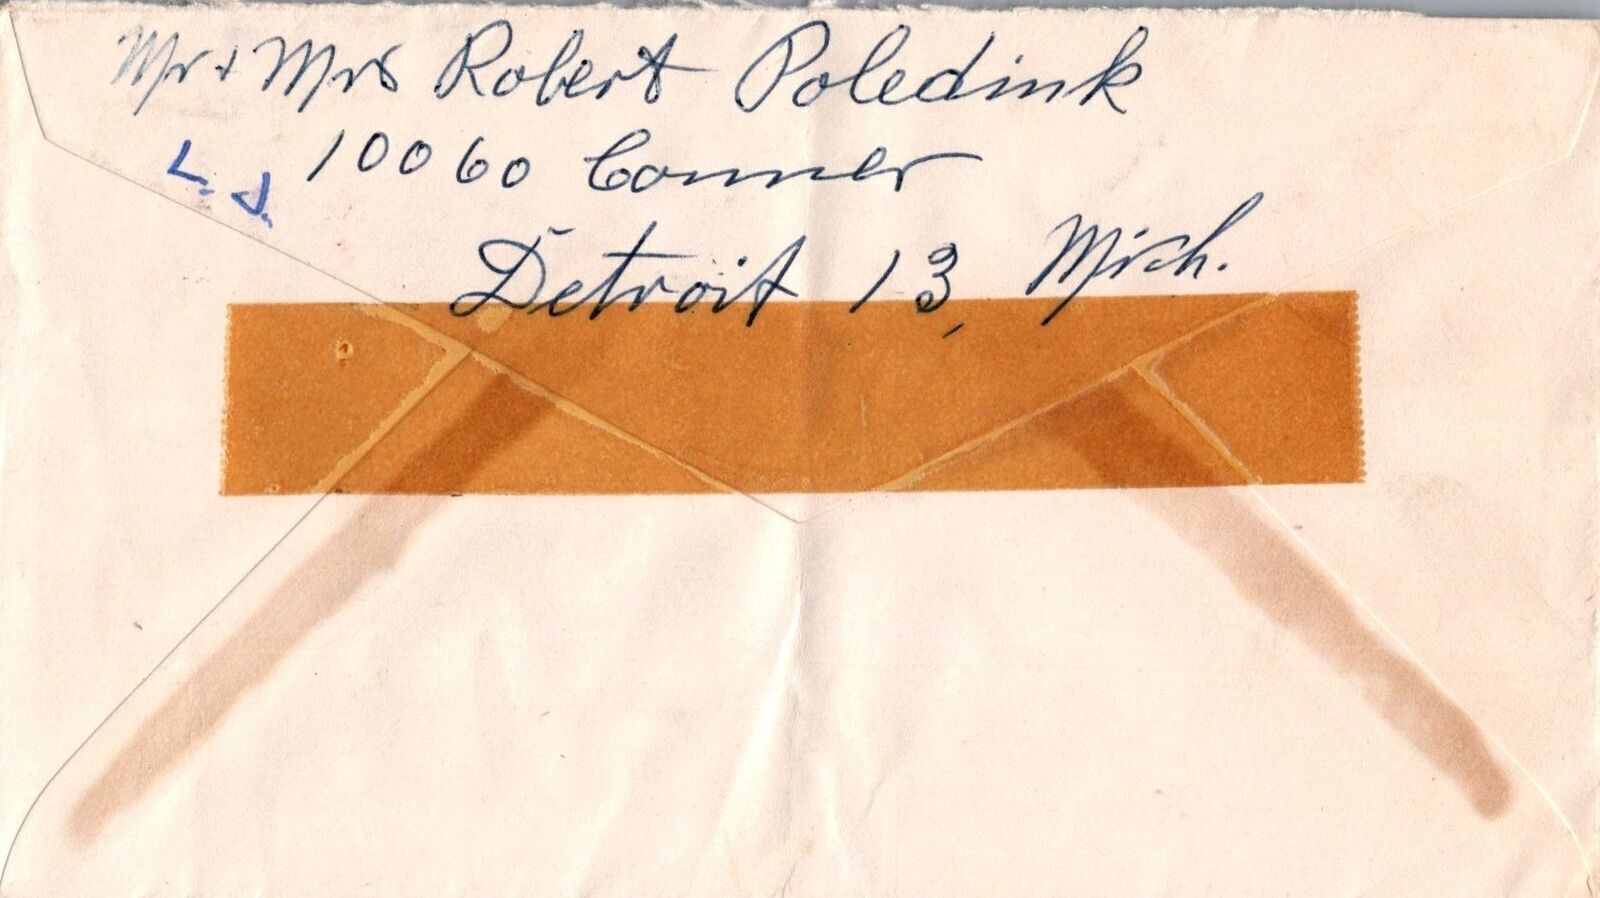 Mr + Mrs Robert Poledink
10060 Conner
L. J.
Detroit 13, Mich.